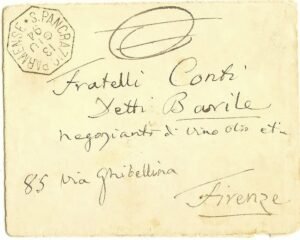 S. PANCRAZIO PARMENSE
Fratelli Conti
Detti Barile
negoziante di vino olio etc.
85 via Ghibellina
Firenze